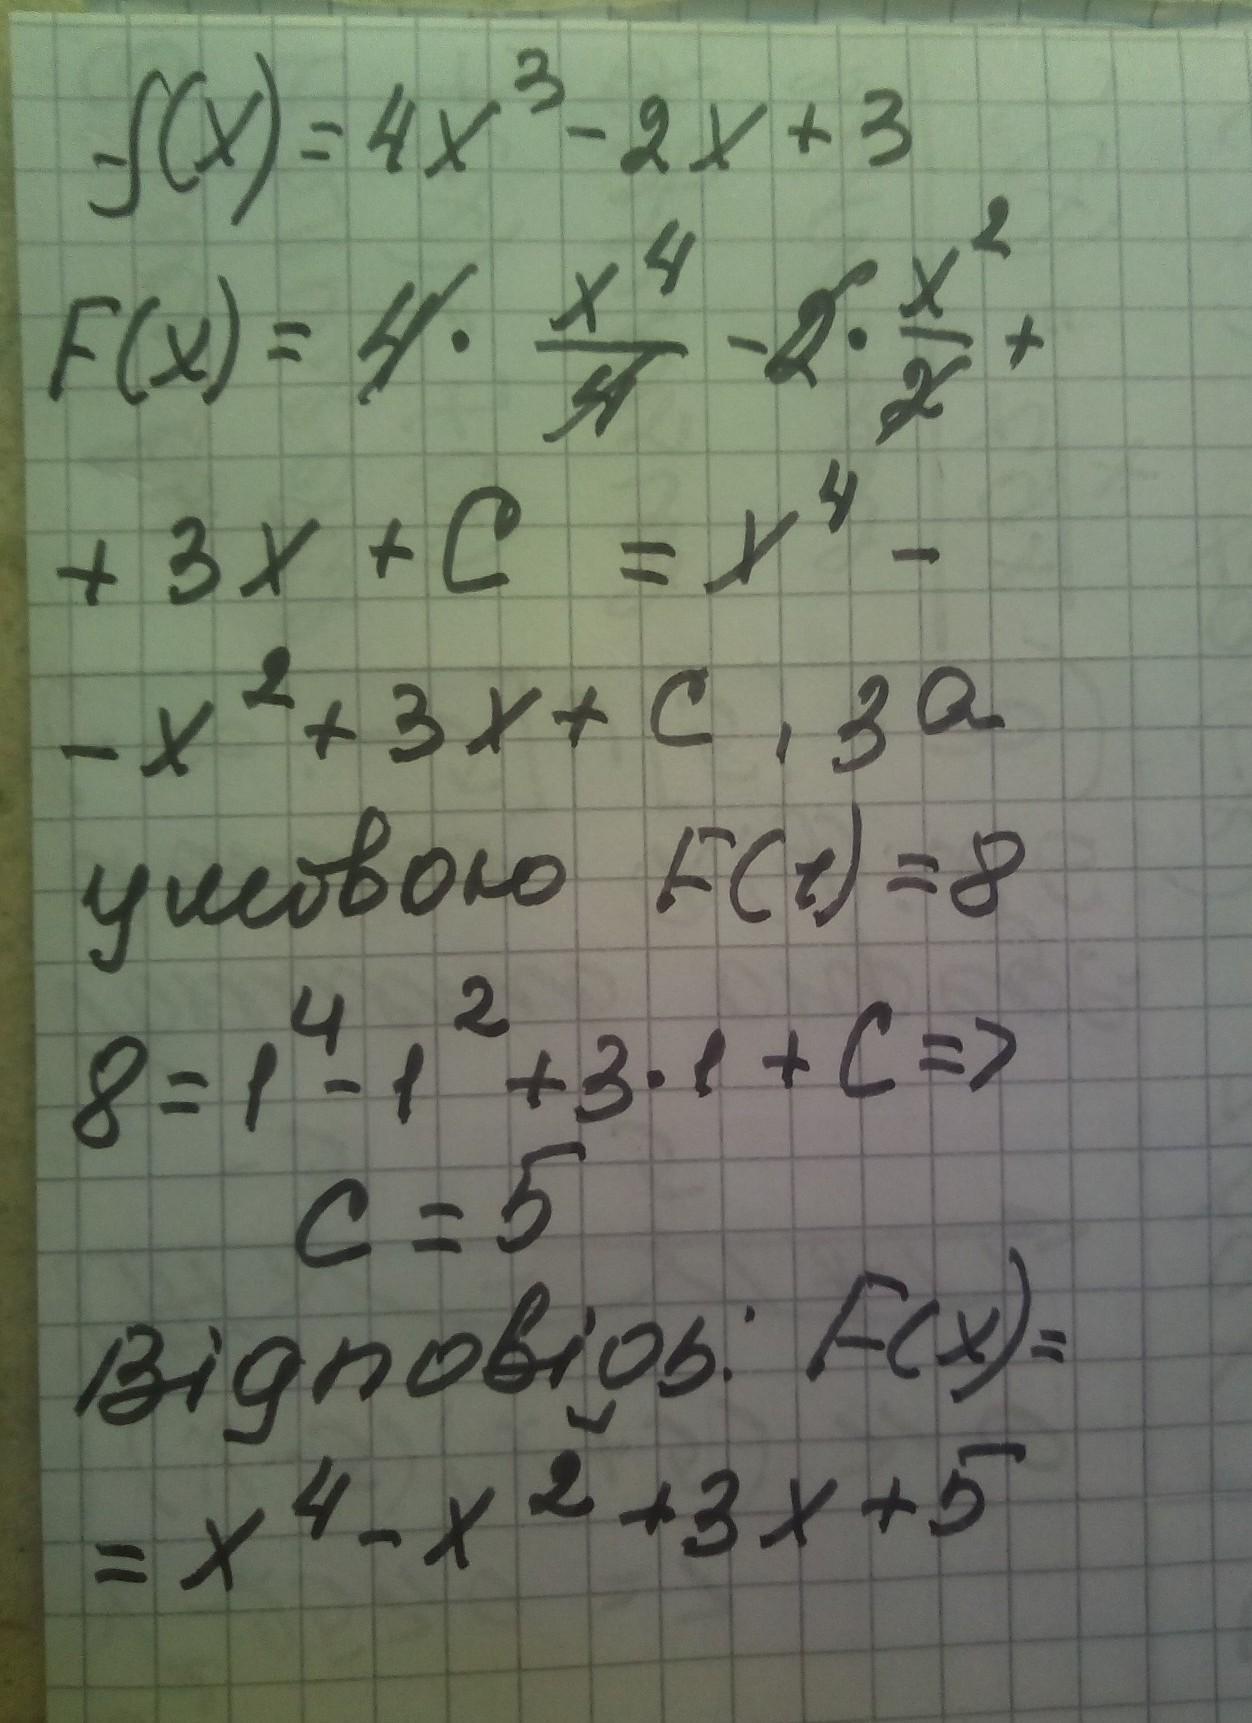 f(x) = 4x³ - 2x + 3
F(x) = 4 · x⁴/4 - 2 · x²/2 +
+ 3x + C = x⁴ -
- x² + 3x + C , за
умовою F(1) = 8
8 = 1⁴ - 1² + 3 · 1 + C =>
C = 5
Відповідь: F(x) =
= x⁴ - x² + 3x + 5